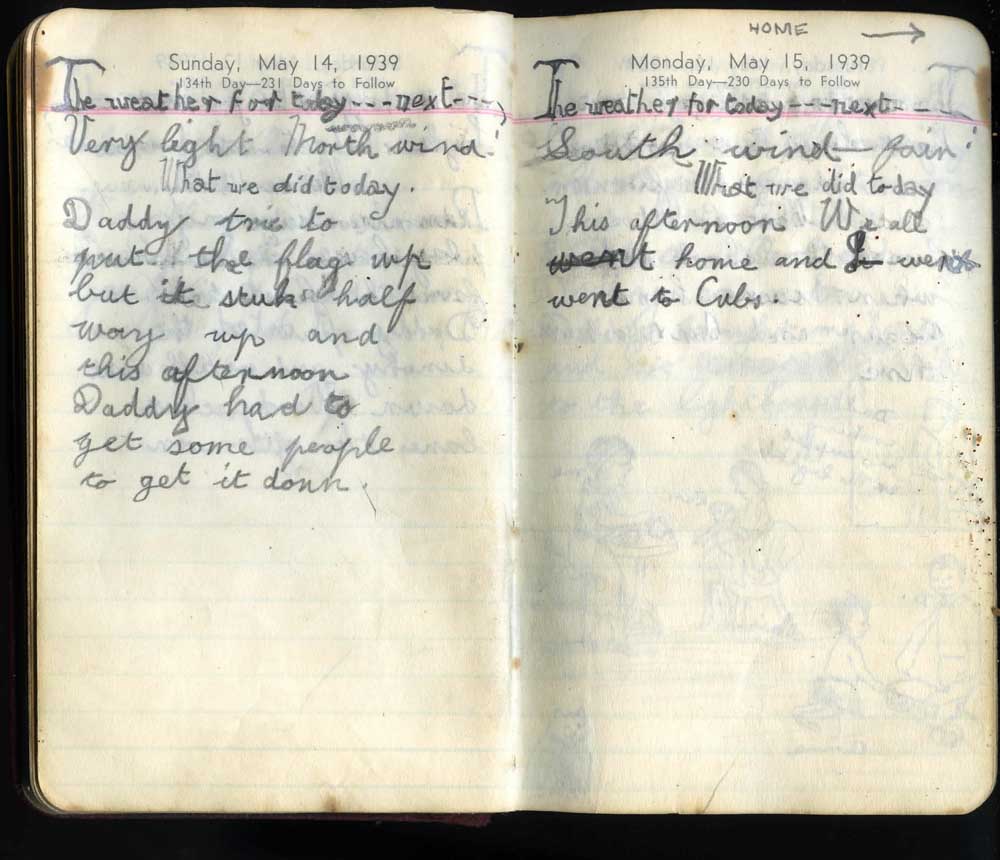 Sunday, May 14, 1939
134th Day—231 Days to Follow
The weather for today---next----,
Very light North wind.
What we did today.
Daddy trie to
put the flag up
but it stuk half
way up and
this afternoon
Daddy had to
get some people
to get it donn.
HOME →
Monday, May 15, 1939
135th Day—230 Days to Follow
The weather for today----next- - -
South wind fair
What we did today
This afternoon We all
went home and I went
went to Cubs.